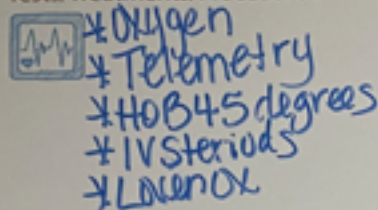 *Oxygen
*Telemetry
*HOB45 degrees
*IV Steriods
*Lovenox